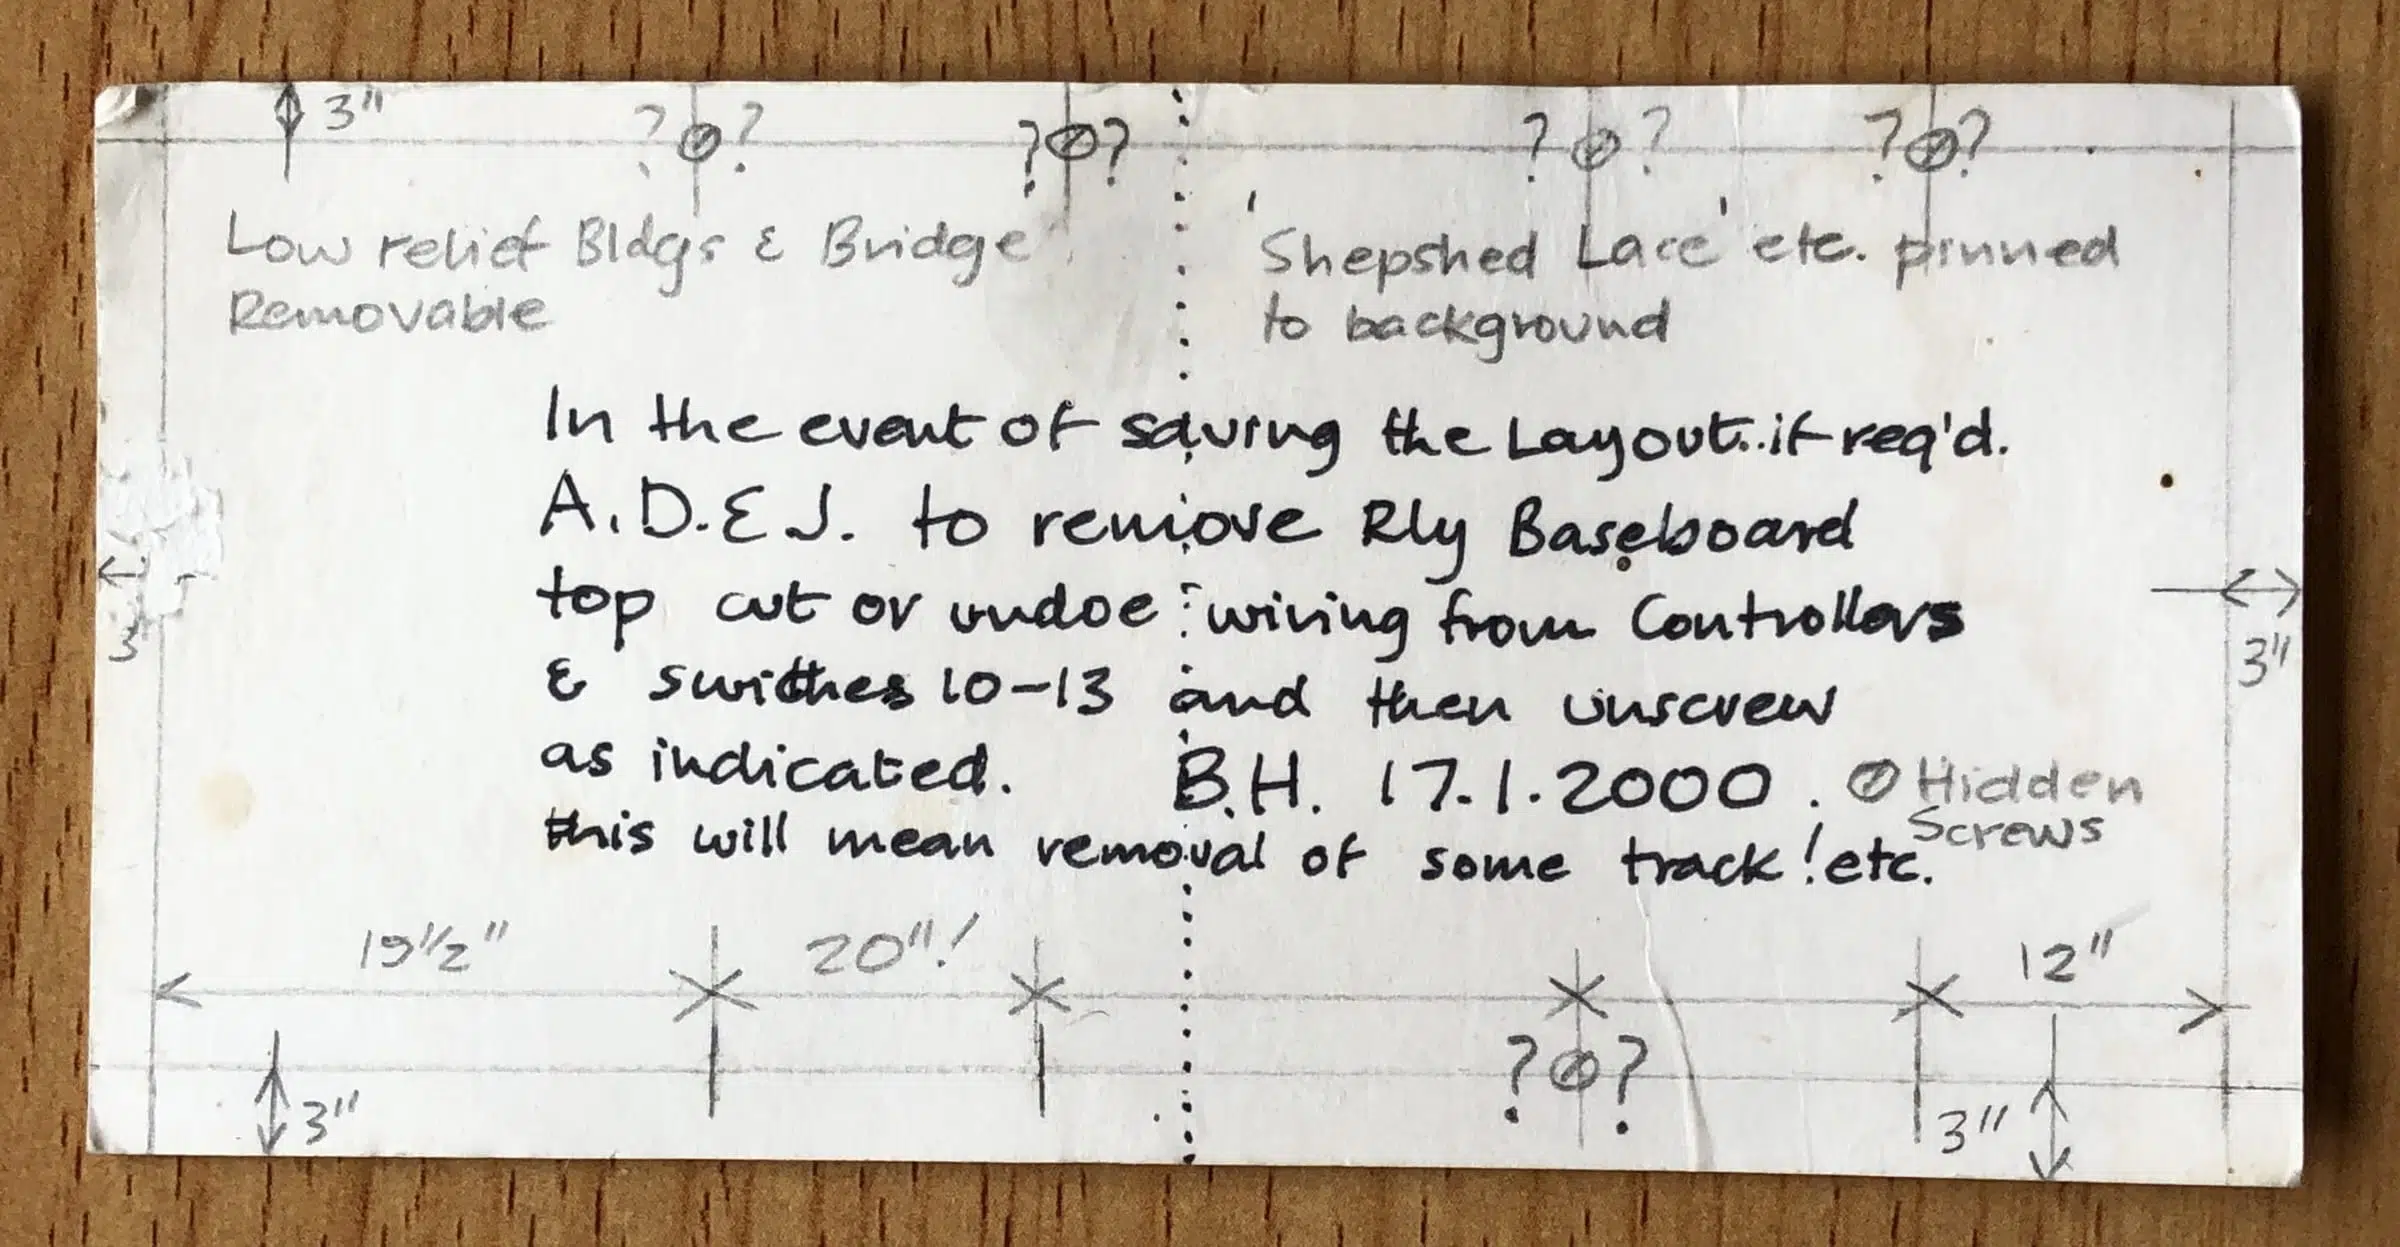 3"
? ? ? ? ? ? ? ?
Low relief Bldgs & Bridge
Removable
'Shepshed Lace' etc. pinned
to background
In the event of saving the Layout..if req'd.
A.D.& J. to remove Rly Baseboard
top cut or undoe wiring from Controllers
& swithes 10-13 and then unscrew
as indicated. B.H. 17.1.2000.
this will mean removal of some track! etc.
Hidden
Screws
3
3"
19½" 20"! 12"
? ?
3" 3"